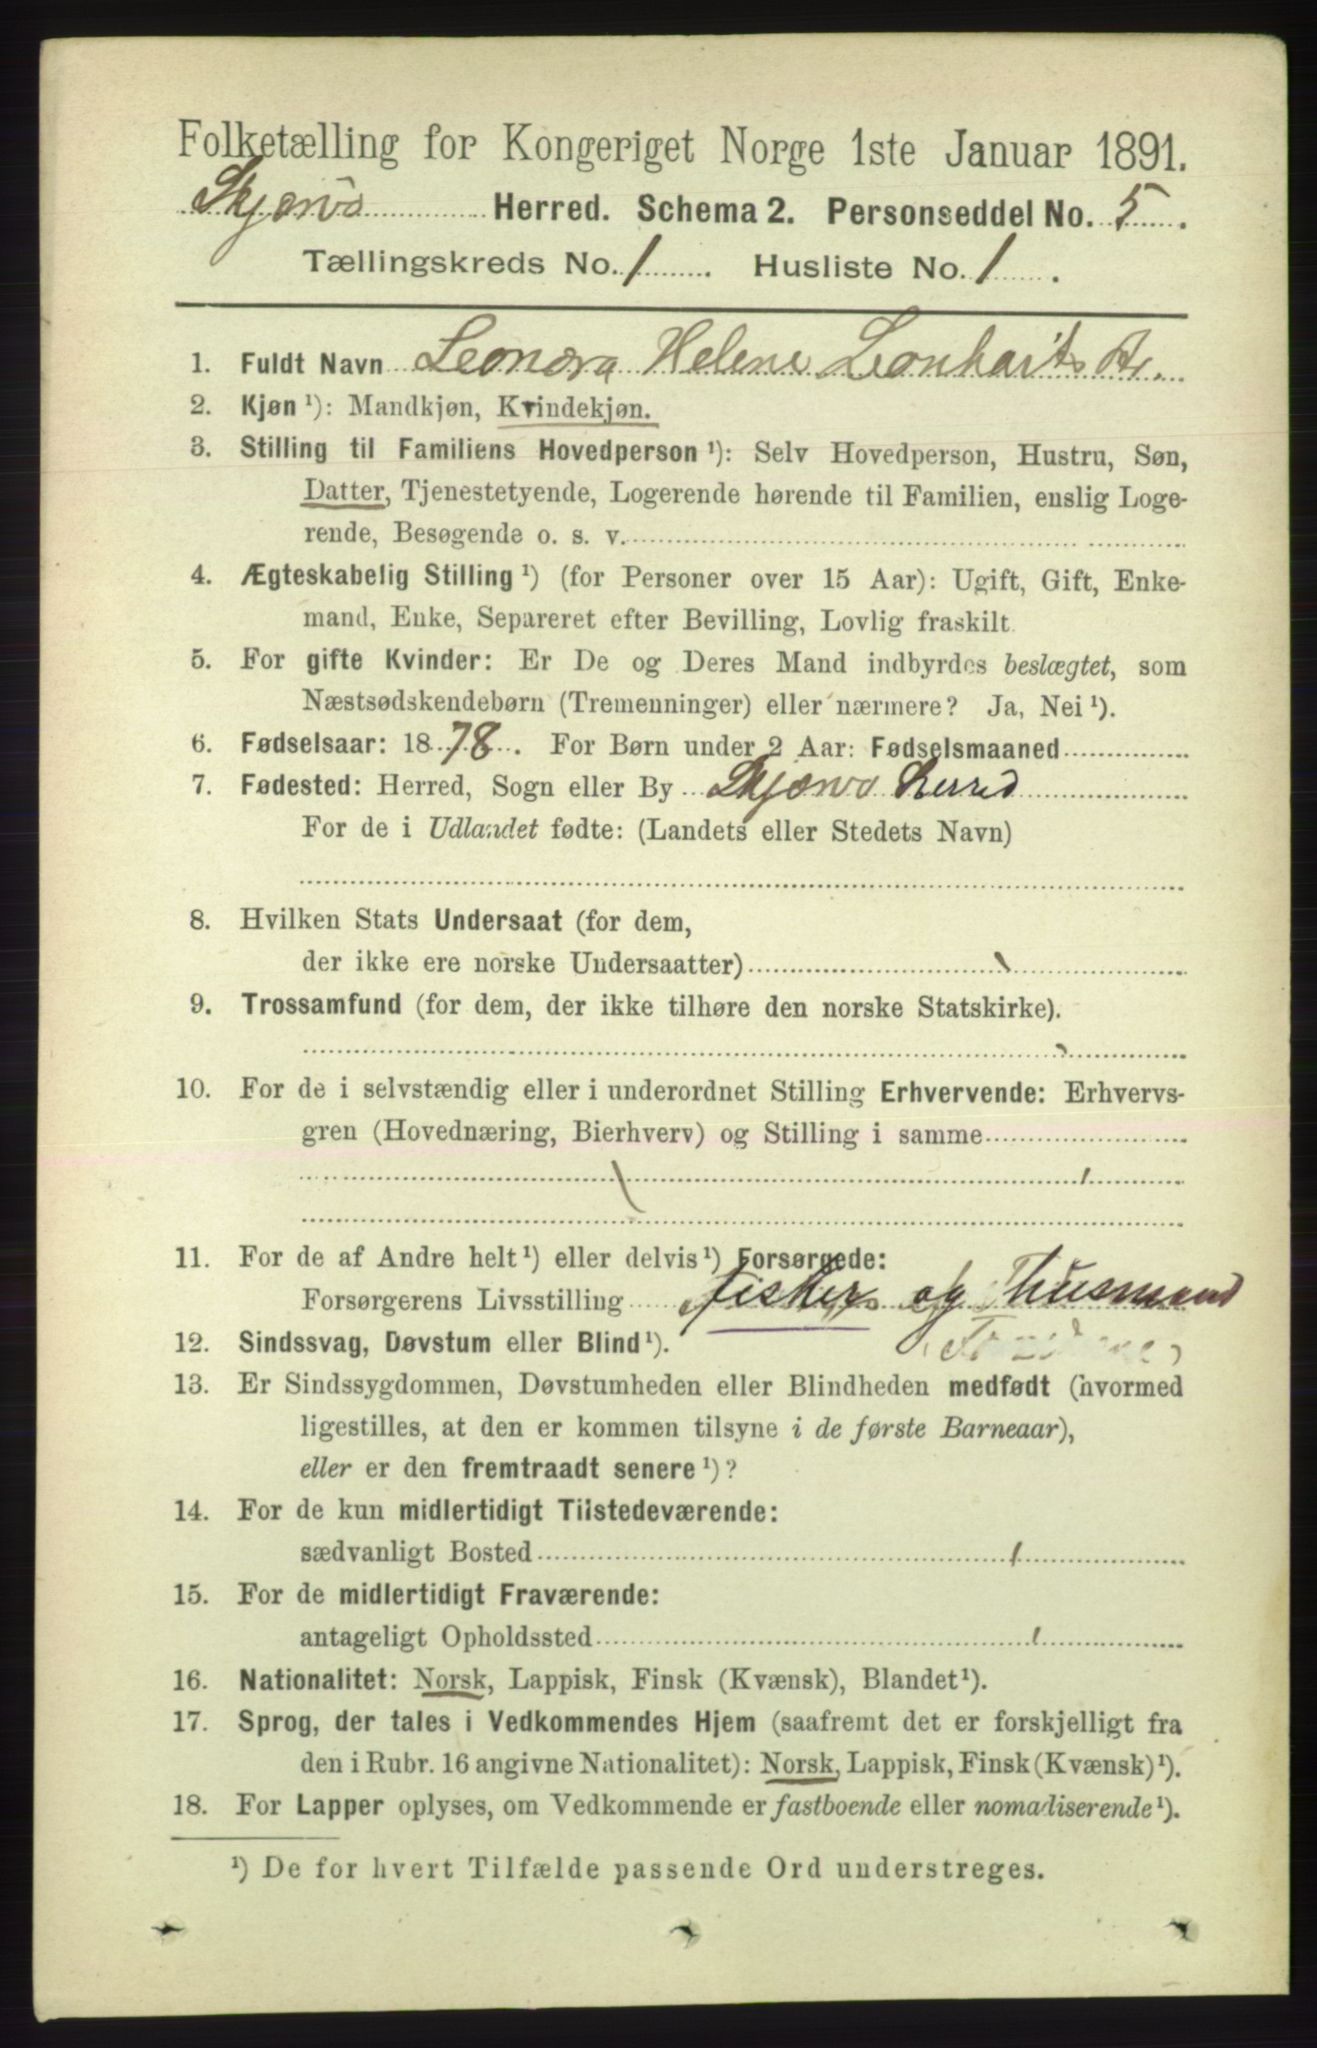 Folketælling for Kongeriget Norge 1ste Januar 1891.
Skjærvø Herred. Schema 2. Personseddel No. 5.
Tællingskreds No. 1. Husliste No. 1.
1. Fuldt Navn Leonora Helene Leonharts Dr.
2. Kjøn ¹): Mandkjøn, Kvindekjøn.
3. Stilling til Familiens Hovedperson ¹): Selv Hovedperson, Hustru, Søn,
Datter, Tjenestetyende, Logerende hørende til Familien, enslig Loge-
rende, Besøgende o. s. v.
4. Ægteskabelig Stilling ¹) (for Personer over 15 Aar): Ugift, Gift, Enke-
mand, Enke, Separeret efter Bevilling, Lovlig fraskilt.
5. For gifte Kvinder: Er De og Deres Mand indbyrdes beslægtet, som
Næstsødskendebørn (Tremenninger) eller nærmere? Ja, Nei ¹).
6. Fødselsaar: 1878. For Børn under 2 Aar: Fødselsmaaned
7. Fødested: Herred, Sogn eller By Skjærvø Herred
For de i Udlandet fødte: (Landets eller Stedets Navn)
8. Hvilken Stats Undersaat (for dem,
der ikke ere norske Undersaatter)
9. Trossamfund (for dem, der ikke tilhøre den norske Statskirke).
10. For de i selvstændig eller i underordnet Stilling Erhvervende: Erhvervs-
gren (Hovednæring, Bierhverv) og Stilling i samme
11. For de af Andre helt ¹) eller delvis ¹) Forsørgede:
Forsørgerens Livsstilling fisker og Husmand
12. Sindssvag, Døvstum eller Blind ¹).
13. Er Sindssygdommen, Døvstumheden eller Blindheden medfødt (hvormed
ligestilles, at den er kommen tilsyne i de første Barneaar),
eller er den fremtraadt senere ¹)?
14. For de kun midlertidigt Tilstedeværende:
sædvanligt Bosted
15. For de midlertidigt Fraværende:
antageligt Opholdssted
16. Nationalitet: Norsk, Lappisk, Finsk (Kvænsk), Blandet ¹).
17. Sprog, der tales i Vedkommendes Hjem (saafremt det er forskjelligt fra
den i Rubr. 16 angivne Nationalitet): Norsk, Lappisk, Finsk (Kvænsk) ¹).
18. For Lapper oplyses, om Vedkommende er fastboende eller nomadiserende ¹).
¹) De for hvert Tilfælde passende Ord understreges.